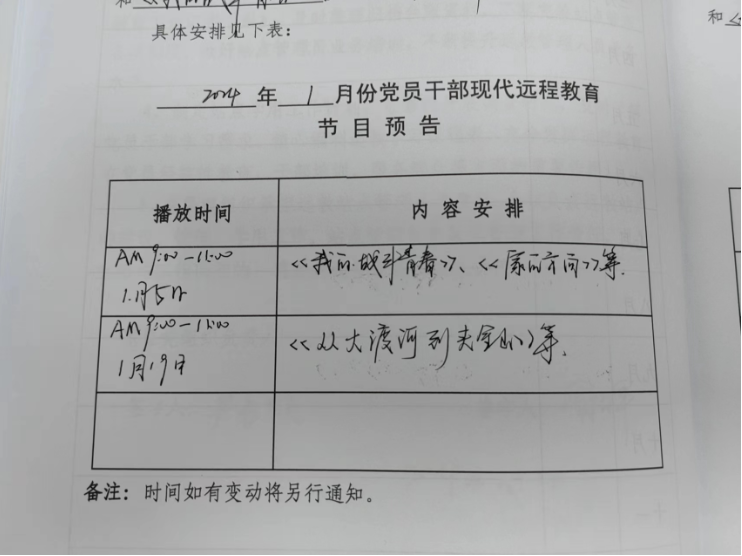 具体安排见下表：
2024年1月份党员干部现代远程教育
节目预告
播放时间 内容安排
AM 9:00-11:00 《我的战斗青春》、《家的方向》等.
1月5日
AM 9:00-11:00 《从大渡河到夹金山》等.
1月19日
备注：时间如有变动将另行通知。